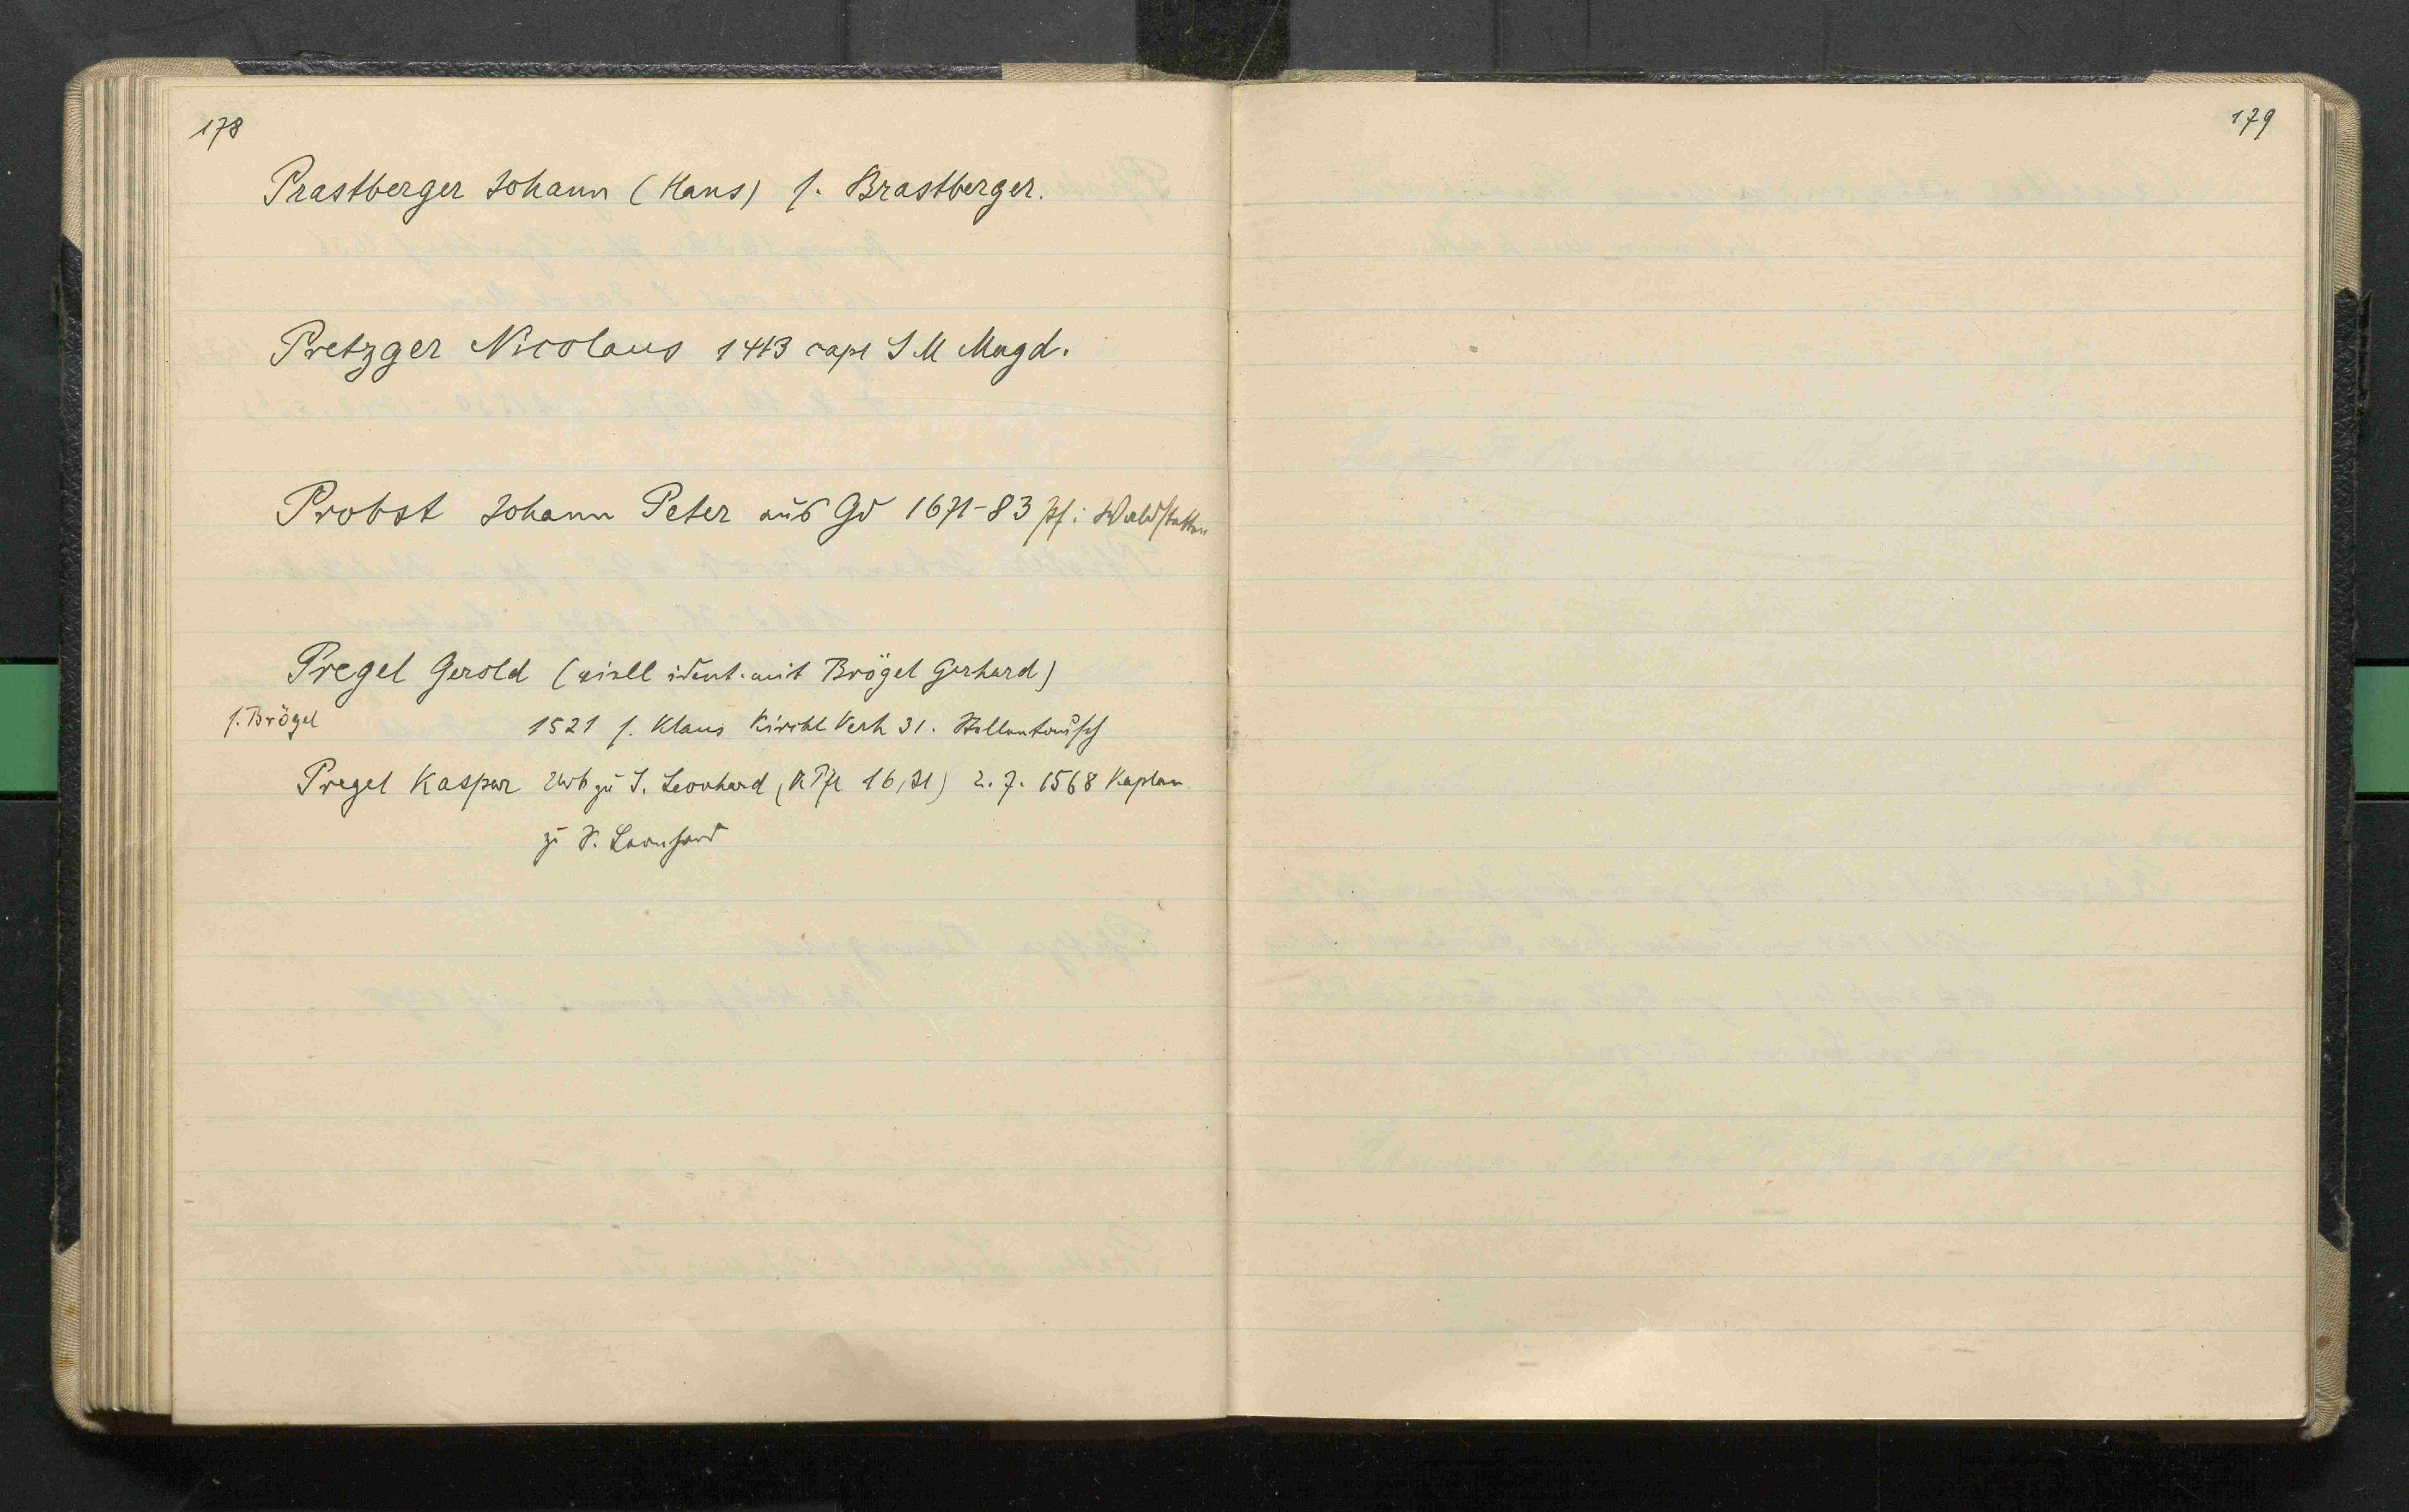 178
Prastberger Johann (Hans) s. Brastberger.
Pretzger Nicolaus 1413 capl S M Magd.
Probst Johann Peter aus Gd 1671-83 Pf. i Waldstetten
Pregel Gerold (viell ident. mit Brögel Gerhard)
s. Brögel
1521 s. Klaus Kirchl Verh 31. Stellentausch
Pregel Kaspar zu S. Leonhard (KPfl 16,71) 2. 7. 1568 Kaplan
zu S. Leonhard
179